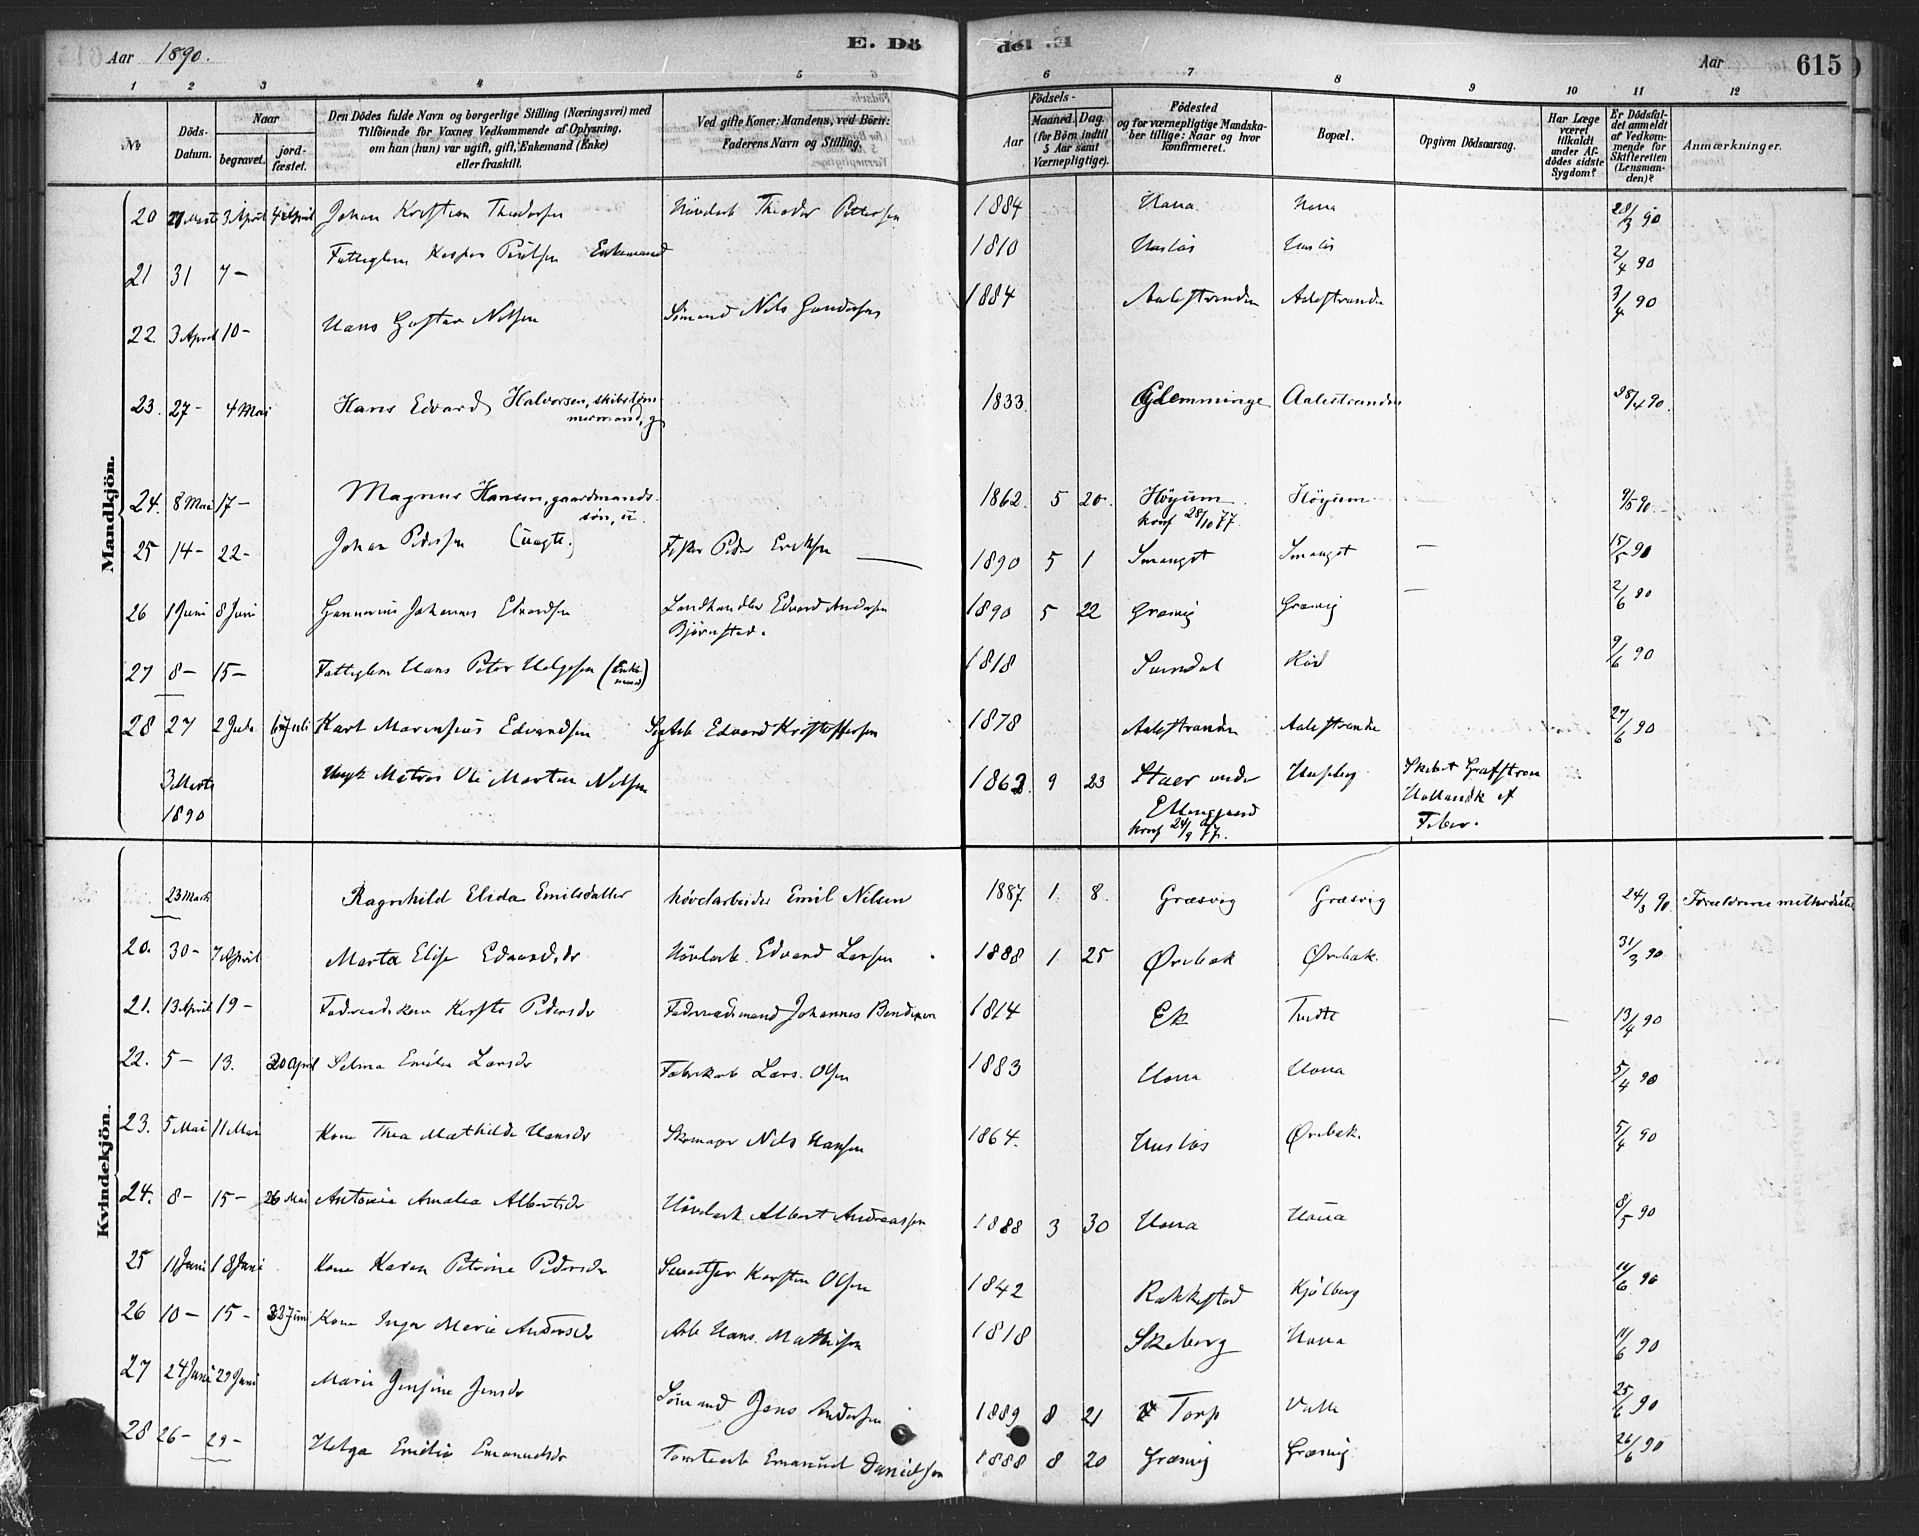 Aar 1890. E. Dö
de. E. Aar 615
1 2 3 4 5 6 7 8 9 10 11 12
No
Döds-Datum.
Naar
begravet.
jord-fæstet.
Den Dödes fulde Navn og borgerlige Stilling (Næringsvei) med
Tilföiende for Voxnes Vedkommende af Oplysning,
om han (hun) var ugift, gift, Enkemand (Enke)
eller fraskilt.
Ved gifte Koner: Mandens, ved Börn:
Faderens Navn og Stilling.
Födsels-
Aar
Maaned. Dag.
(for Börn indtil
5 Aar samt
Værnepligtige).
Födested
og for værnepligtige Mandska-
ber tillige: Naar og hvor
konfirmeret.
Bopæl.
Opgiven Dödsaarsag.
Har Læge
været
tilkaldt
under Af-
dödes sidste
Sygdom?
Er Dödsfal-
det anmeldt
af Vedkom-
mende for
Skifteretten
(Lensman-
den)?
Anmærkninger.
Mandkjön.
20 Marts 3 April 4 April Johan Kristian Theodorsen Høvlarb Theodor Pettersen 1884 Hona Hona 28/3 90
21 31 7 - Fattiglem Kasper Poulsen Enkemand 1810 Huslös Huslös 2/4 90
22. 3 April 10 - Hans Gustav Nilsen Sömand Nils Gundersen 1884 Aalestranden Aalestranden 3/4 90
23. 27 - 4 Mai Hans Edvard Halvorsen, skibstøm-
mermand, g 1833. Glemminge Aalestranden 28/4 90.
24. 8 Mai 17 - Magnus Hansen, gaardmands-
søn, u. 1862 5 20 Höyum Höyum - 9/5 90.
konf 28/10 77.
25 14 - 22 - Johan Pedersen (uægte.) Fisker Peder Eriksen 1890 5 1 Smauget Smauget - 15/5 90
26 1 Juni 8 Juni Johannes Edvardsen Landhandler Edvard Andersen
Björnstad. 1890 5 22 Græsvig Græsvig - 2/6 90
27 8 - 15 - Fattiglem Hans Peter Helgesen (Enke-
mand) 1818 Rød 9/6 90
28 27 2 Juli 6 Juli Karl Edvardsen Edvard Kristoffersen 1878 Aalestranden Aalestranden 27/6 90
3 Marts
1890 Ungk Matros Ole Martin Nilsen 1862 9 23 Staer under Skibet Grafstrom
konf 24/9 77. Feber.
Kvindekjön.
23 Marts Ragnhild Elida Emilsdatter høvlarbeider Emil Nilsen 1887 1 8. Græsvig Græsvig 24/3 90. Forældrene methodister
20. 30 - 7 April Marta Elise Edvardsdr Høvlarb. Edvard Larsen 1888 1 25 Ørebak Ørebak. 31/3 90
21. 13 April 19 - Kersti Pedersdr Johannes Bendixen 1814 Ek Tvedte - - 13/4 90
22. 5 - 13. 20 April Selma Emilie Larsdr Fabrikarb Lars Olsen 1883 Hona Hona 5/4 90
23. 5 Mai 11 Mai Kone Thea Mathilde Hansdr Skomager Nils Hansen 1864. Huslös Ørebak. 5/4 90
24. 8 - 15 - 26 Mai Antonie Amalia Albertsdr Høvlarb. Albert Andreassen 1888 3 30 Hona Hona 8/5 90
25 11 Juni 18 Juni Kone Karen Petrine Pedersdr Karsten Olsen 1842 Rakkestad Kjölberg 11/6 90
26 10 - 15 - 22 Juni Kone Inger Marie Andersdr Arb Hans Mathisen 1818 Skeberg Hona 11/6 90
27 24 Juni 29 Juni Marie Jensine Jensdr Sömand Jens Andersen 1889 8 21 Torp Valle 25/6 90
28 26 - 29 - Helga Emilie Emanuelsdr Tomtearb Emanuel Danielsen 1888 8 20 Græsvig Græsvig 26/6 90